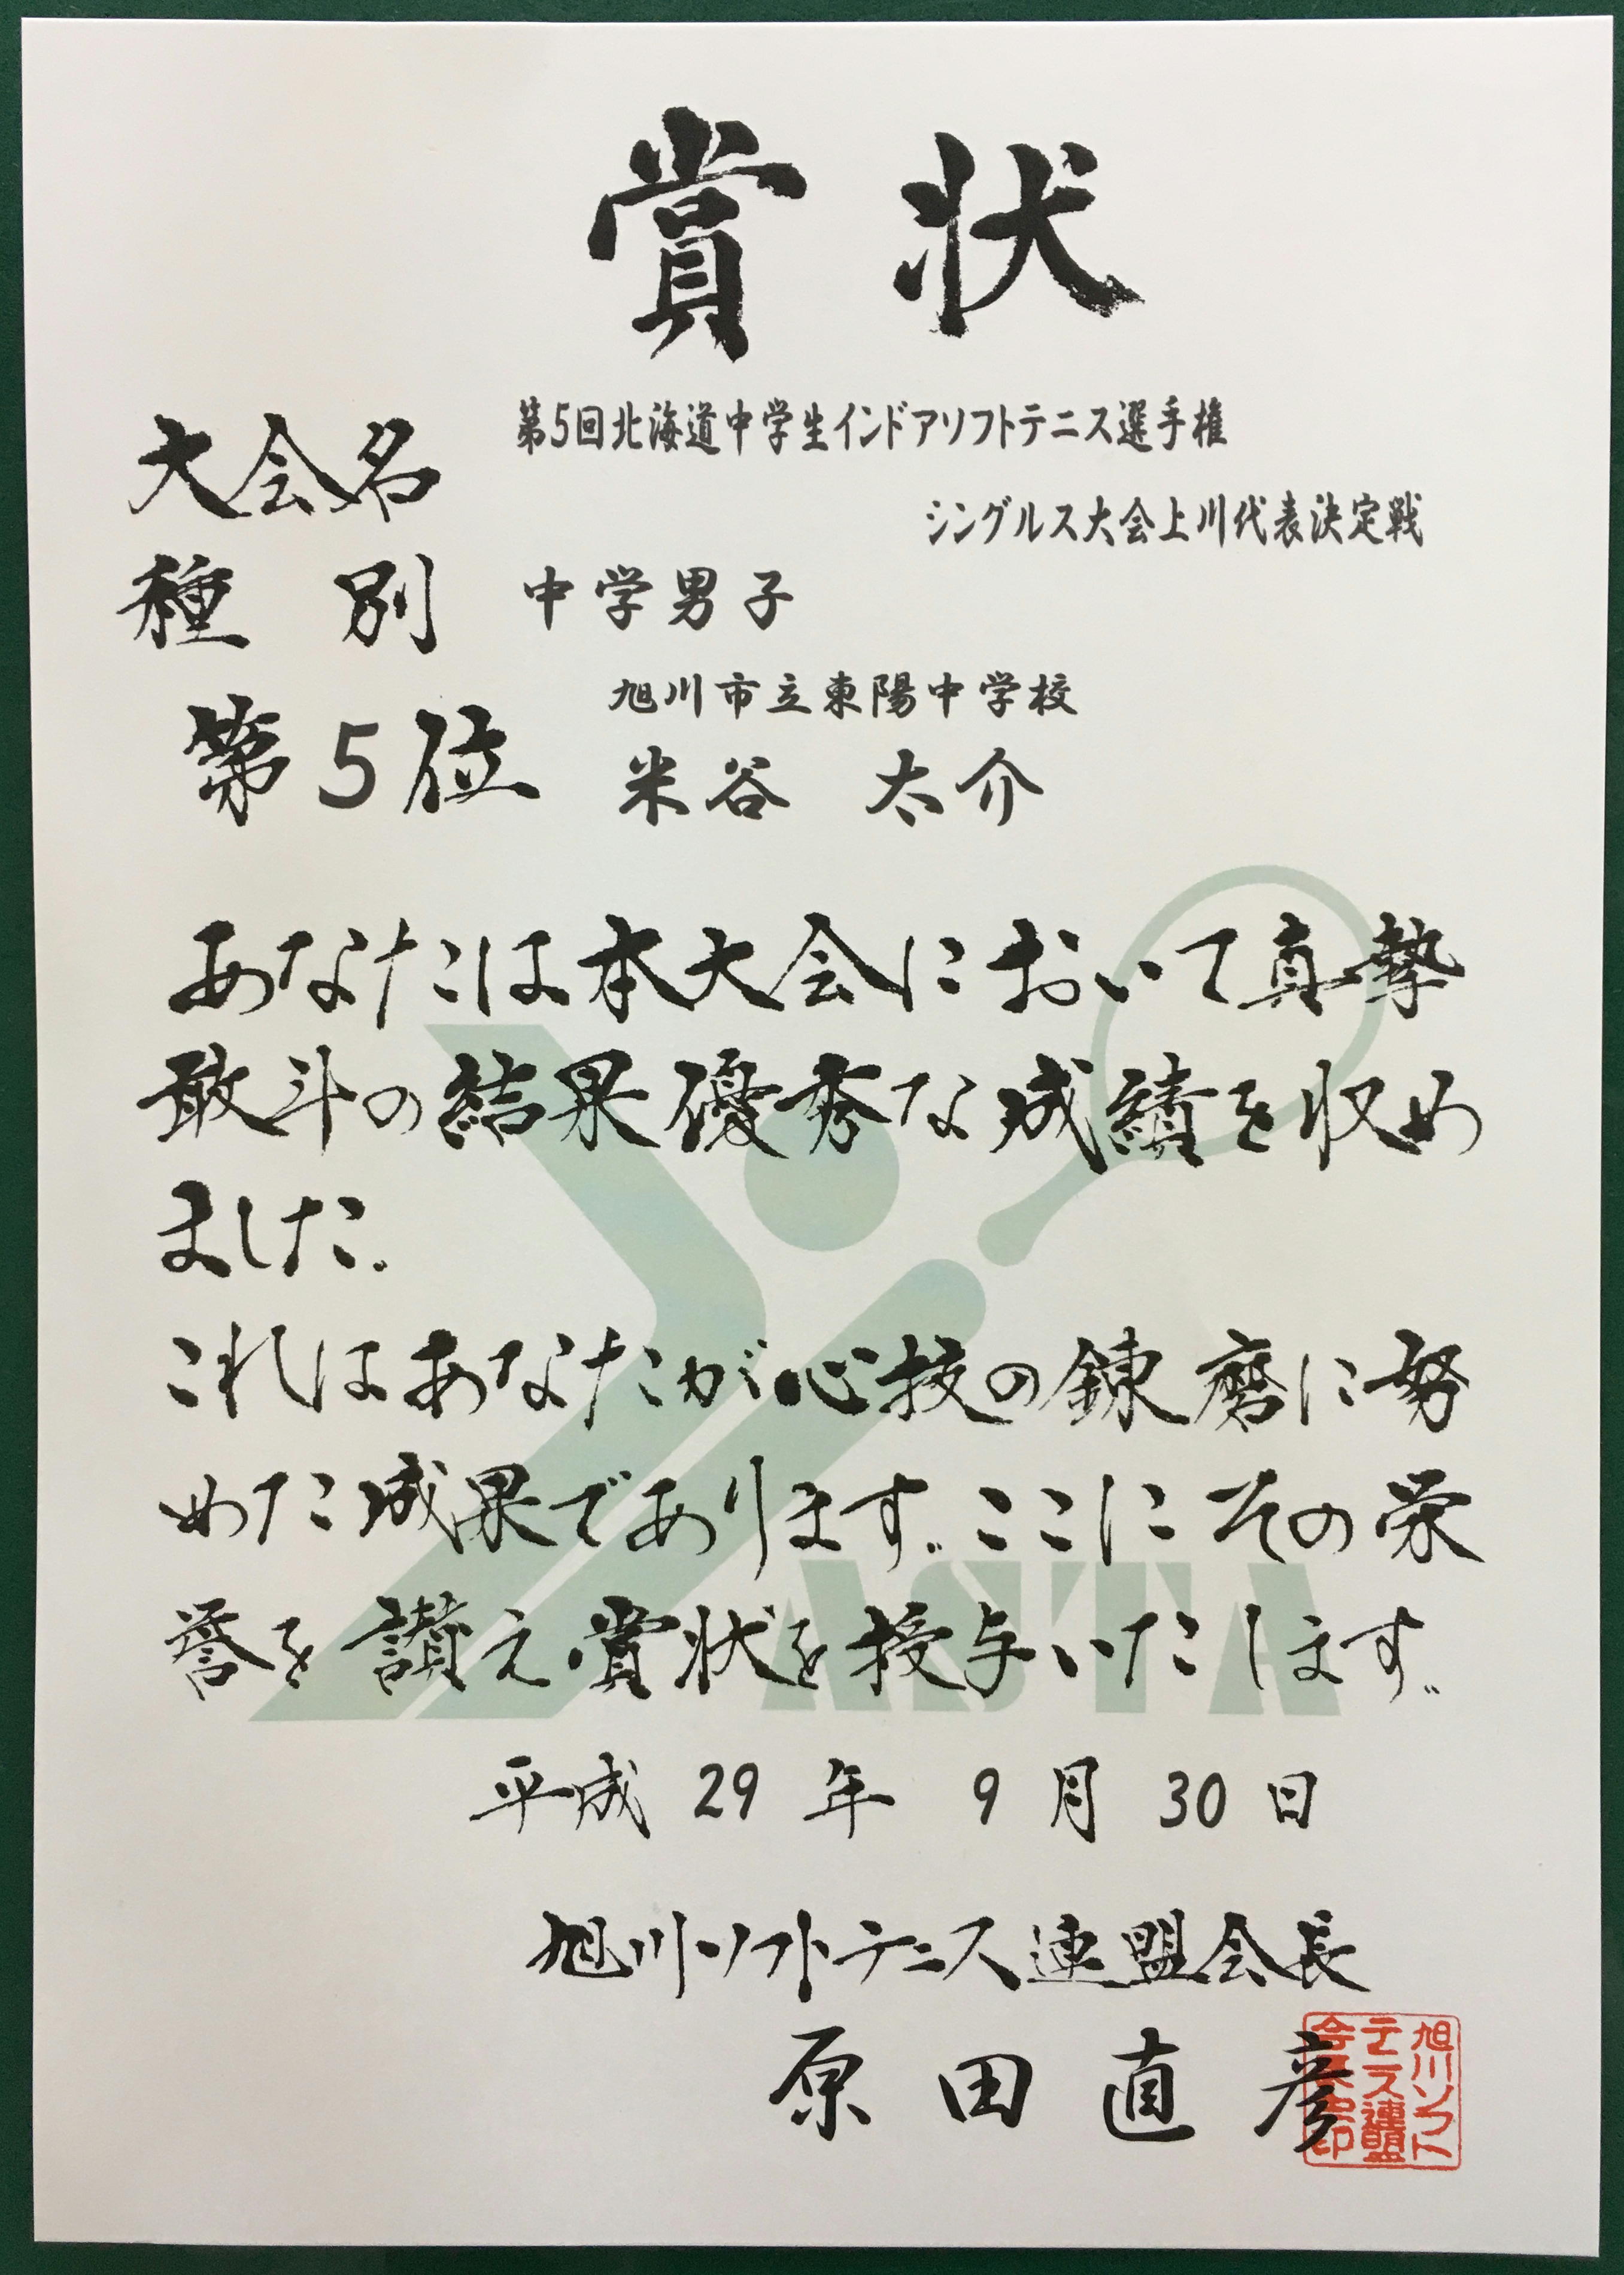 賞状
大会名 第5回北海道中学生インドアソフトテニス選手権
シングルス大会上川代表決定戦
種別 中学男子
旭川市立東陽中学校
第5位 米谷 太介
あなたは本大会において真摯
敢斗の結果優秀な成績を収め
ました。
これはあなたが心技の錬磨に努
めた成果であります。ここにその栄
誉を讃え賞状を授与いたします。
ASTA
平成 29 年 9 月 30 日
旭川ソフトテニス連盟会長
原田直彦
旭川ソフト
テニス連盟